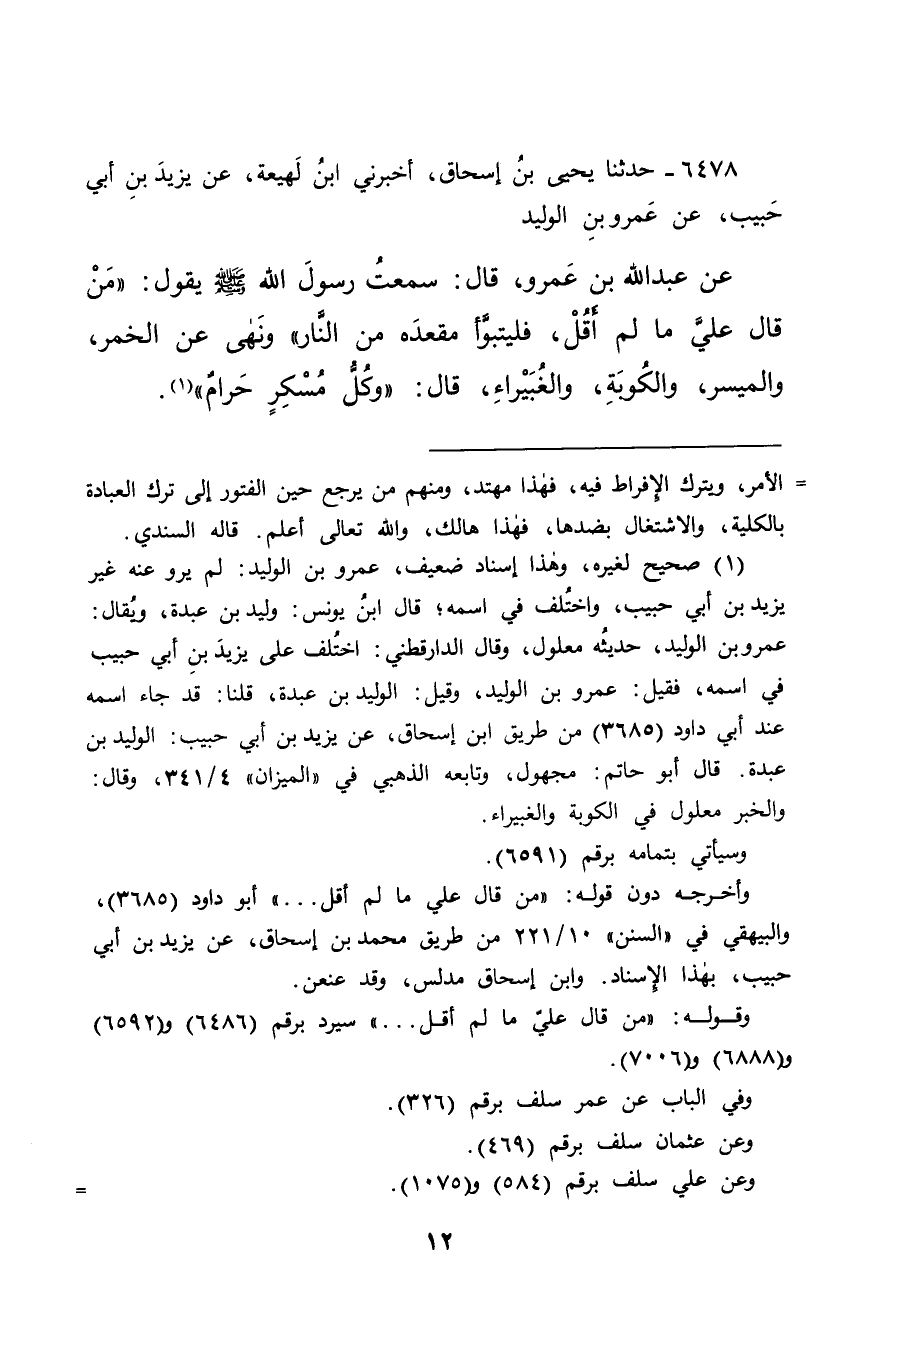 ٦٤٧٨ - حدثنا يحيى بنُ إسحاق، أخبرني ابنُ لَهيعة، عن يزيدَ بنِ أبي
حَبيب، عن عَمرو بنِ الوليد
عن عبدالله بن عَمرو، قال: سمعتُ رسولَ الله ﷺ يقول: «مَنْ
قال عليَّ ما لم أَقُلْ، فليتبوَّأ مقعدَه من النَّار» ونَهٰى عن الخمر،
والميسر، والكُوبَةِ، والغُبَيْراءِ، قال: «وكُلُّ مُسْكِرٍ حَرامٌ»(١).
= الأمر، ويترك الإفراط فيه، فهٰذا مهتد، ومنهم من يرجع حين الفتور إلى ترك العبادة
بالكلية، والاشتغال بضدها، فهٰذا هالك، والله تعالى أعلم. قاله السندي.
(١) صحيح لغيره، وهٰذا إسناد ضعيف، عمرو بن الوليد: لم يرو عنه غير
يزيد بن أبي حبيب، واختُلف في اسمه؛ قال ابنُ يونس: وليد بن عبدة، ويُقال:
عمرو بن الوليد، حديثُه معلول، وقال الدارقطني: اختُلف على يزيدَ بنِ أبي حبيب
في اسمه، فقيل: عمرو بن الوليد، وقيل: الوليد بن عبدة، قلنا: قد جاء اسمه
عند أبي داود (٣٦٨٥) من طريق ابن إسحاق، عن يزيد بن أبي حبيب: الوليد بن
عبدة. قال أبو حاتم: مجهول، وتابعه الذهبي في «الميزان» ٣٤١/٤، وقال:
والخبر معلول في الكوبة والغبيراء.
وسيأتي بتمامه برقم (٦٥٩١).
وأخرجه دون قوله: «من قال علي ما لم أقل...» أبو داود (٣٦٨٥)،
والبيهقي في «السنن» ٢٢١/١٠ من طريق محمد بن إسحاق، عن يزيد بن أبي
حبيب، بهٰذا الإسناد. وابن إسحاق مدلس، وقد عنعن.
وقوله: «من قال عليّ ما لم أقل...» سيرد برقم (٦٤٨٦) و(٦٥٩٢)
و(٦٨٨٨) و(٧٠٠٦).
وفي الباب عن عمر سلف برقم (٣٢٦).
وعن عثمان سلف برقم (٤٦٩).
وعن علي سلف برقم (٥٨٤) و(١٠٧٥). =
١٢